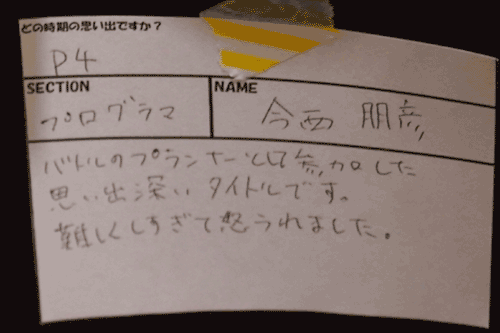 どの時期の思い出ですか？
P4
SECTION
NAME
プログラマ
今西 朋彦
バトルのプランナーとして参加した
思い出深いタイトルです。
難しくしすぎて怒られました。